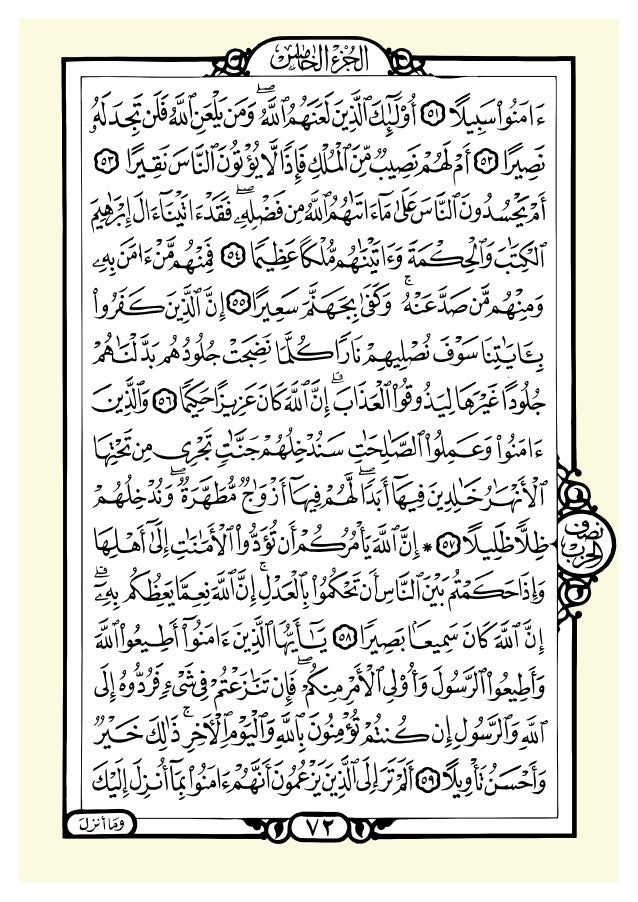 الجزء الخامس
ءَامَنُوا۟ سَبِيلًا ٥١ أُو۟لَٰٓئِكَ ٱلَّذِينَ لَعَنَهُمُ ٱللَّهُ ۖ وَمَن يَلْعَنِ ٱللَّهُ فَلَن تَجِدَ لَهُۥ
نَصِيرًا ٥٢ أَمْ لَهُمْ نَصِيبٌ مِّنَ ٱلْمُلْكِ فَإِذًا لَّا يُؤْتُونَ ٱلنَّاسَ نَقِيرًا ٥٣
أَمْ يَحْسُدُونَ ٱلنَّاسَ عَلَىٰ مَآ ءَاتَىٰهُمُ ٱللَّهُ مِن فَضْلِهِۦ ۖ فَقَدْ ءَاتَيْنَآ ءَالَ إِبْرَٰهِيمَ
ٱلْكِتَٰبَ وَٱلْحِكْمَةَ وَءَاتَيْنَٰهُم مُّلْكًا عَظِيمًا ٥٤ فَمِنْهُم مَّنْ ءَامَنَ بِهِۦ
وَمِنْهُم مَّن صَدَّ عَنْهُ ۚ وَكَفَىٰ بِجَهَنَّمَ سَعِيرًا ٥٥ إِنَّ ٱلَّذِينَ كَفَرُوا۟
بِـَٔايَٰتِنَا سَوْفَ نُصْلِيهِمْ نَارًا كُلَّمَا نَضِجَتْ جُلُودُهُم بَدَّلْنَٰهُمْ
جُلُودًا غَيْرَهَا لِيَذُوقُوا۟ ٱلْعَذَابَ ۗ إِنَّ ٱللَّهَ كَانَ عَزِيزًا حَكِيمًا ٥٦ وَٱلَّذِينَ
ءَامَنُوا۟ وَعَمِلُوا۟ ٱلصَّٰلِحَٰتِ سَنُدْخِلُهُمْ جَنَّٰتٍ تَجْرِى مِن تَحْتِهَا
ٱلْأَنْهَٰرُ خَٰلِدِينَ فِيهَآ أَبَدًا ۖ لَّهُمْ فِيهَآ أَزْوَٰجٌ مُّطَهَّرَةٌ ۖ وَنُدْخِلُهُمْ
ظِلًّا ظَلِيلًا ٥٧ * إِنَّ ٱللَّهَ يَأْمُرُكُمْ أَن تُؤَدُّوا۟ ٱلْأَمَٰنَٰتِ إِلَىٰٓ أَهْلِهَا
وَإِذَا حَكَمْتُم بَيْنَ ٱلنَّاسِ أَن تَحْكُمُوا۟ بِٱلْعَدْلِ ۚ إِنَّ ٱللَّهَ نِعِمَّا يَعِظُكُم بِهِۦٓ ۗ
إِنَّ ٱللَّهَ كَانَ سَمِيعًۢا بَصِيرًا ٥٨ يَٰٓأَيُّهَا ٱلَّذِينَ ءَامَنُوٓا۟ أَطِيعُوا۟ ٱللَّهَ
وَأَطِيعُوا۟ ٱلرَّسُولَ وَأُو۟لِى ٱلْأَمْرِ مِنكُمْ ۖ فَإِن تَنَٰزَعْتُمْ فِى شَىْءٍ فَرُدُّوهُ إِلَى
ٱللَّهِ وَٱلرَّسُولِ إِن كُنتُمْ تُؤْمِنُونَ بِٱللَّهِ وَٱلْيَوْمِ ٱلْءَاخِرِ ۚ ذَٰلِكَ خَيْرٌ
وَأَحْسَنُ تَأْوِيلًا ٥٩ أَلَمْ تَرَ إِلَى ٱلَّذِينَ يَزْعُمُونَ أَنَّهُمْ ءَامَنُوا۟ بِمَآ أُنزِلَ إِلَيْكَ
نصف
الحزب
٧٢
وما أنزل